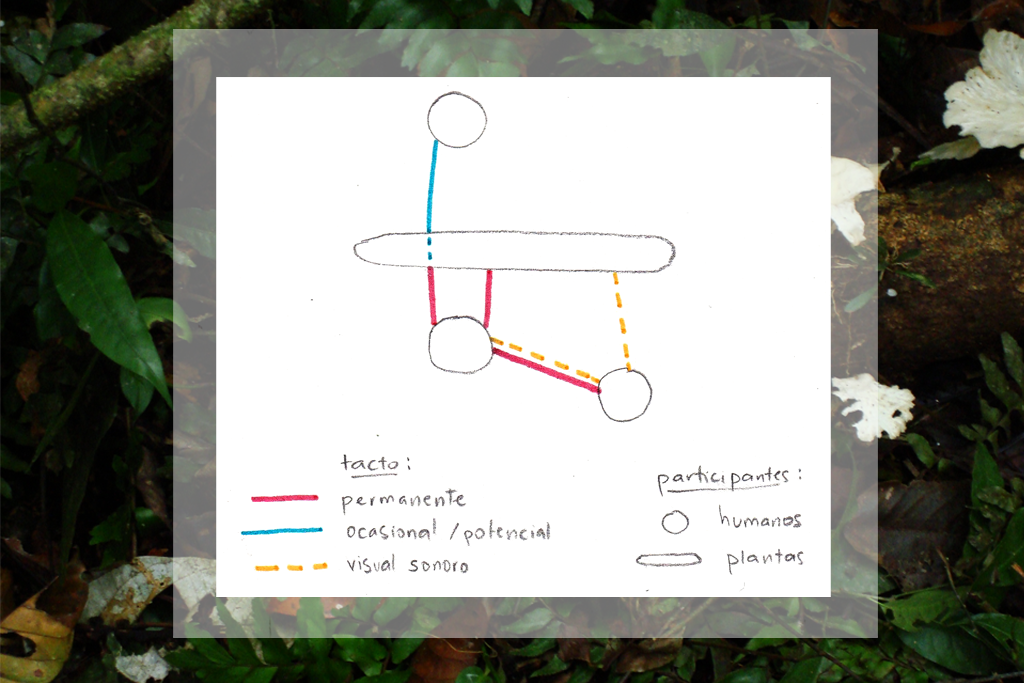 tacto:
permanente
ocasional / potencial
visual sonoro
participantes:
humanos
plantas